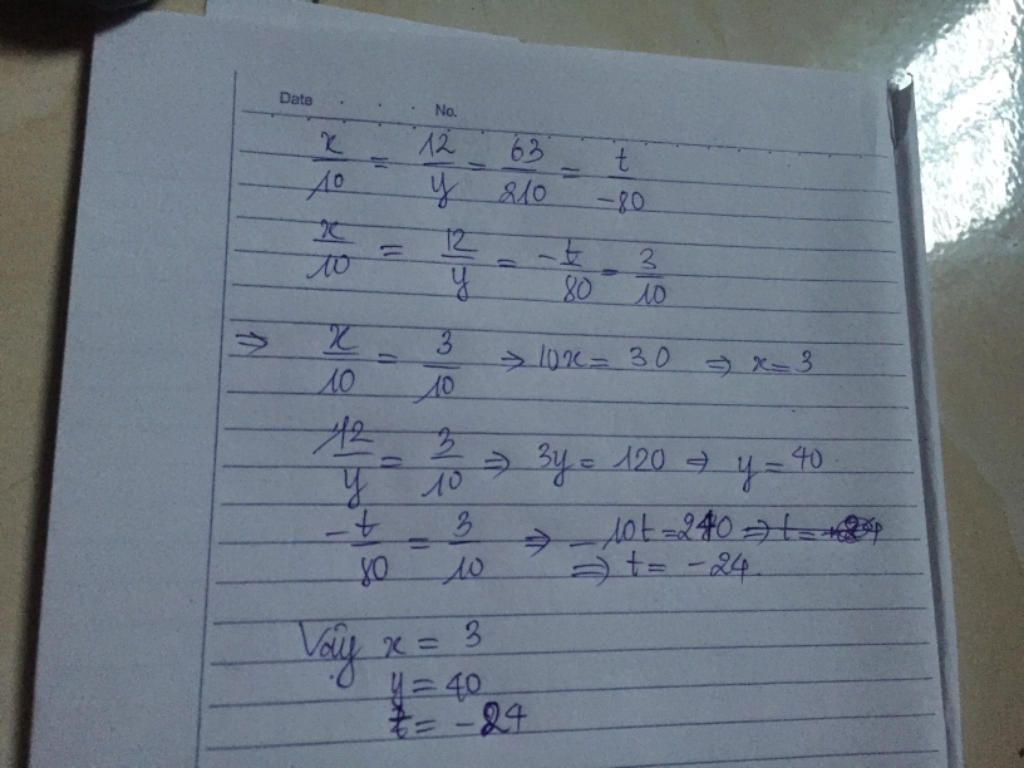 Date . . . No.
x/10 = 12/y = 63/210 = t/-80
x/10 = 12/y = -t/80 = 3/10
⇒ x/10 = 3/10 ⇒ 10x = 30 ⇒ x = 3
12/y = 3/10 ⇒ 3y = 120 ⇒ y = 40
-t/80 = 3/10 ⇒ -10t = 240 ⇒ t =
⇒ t = -24
Vậy x = 3
y = 40
t = -24